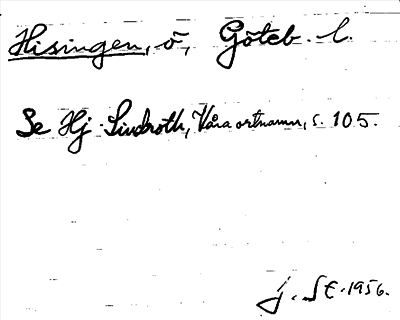 Hisingen, ö, Göteb. l.
Se Hj. Lindroth, Våra ortnamn, s. 105.
J. SE. 1956.